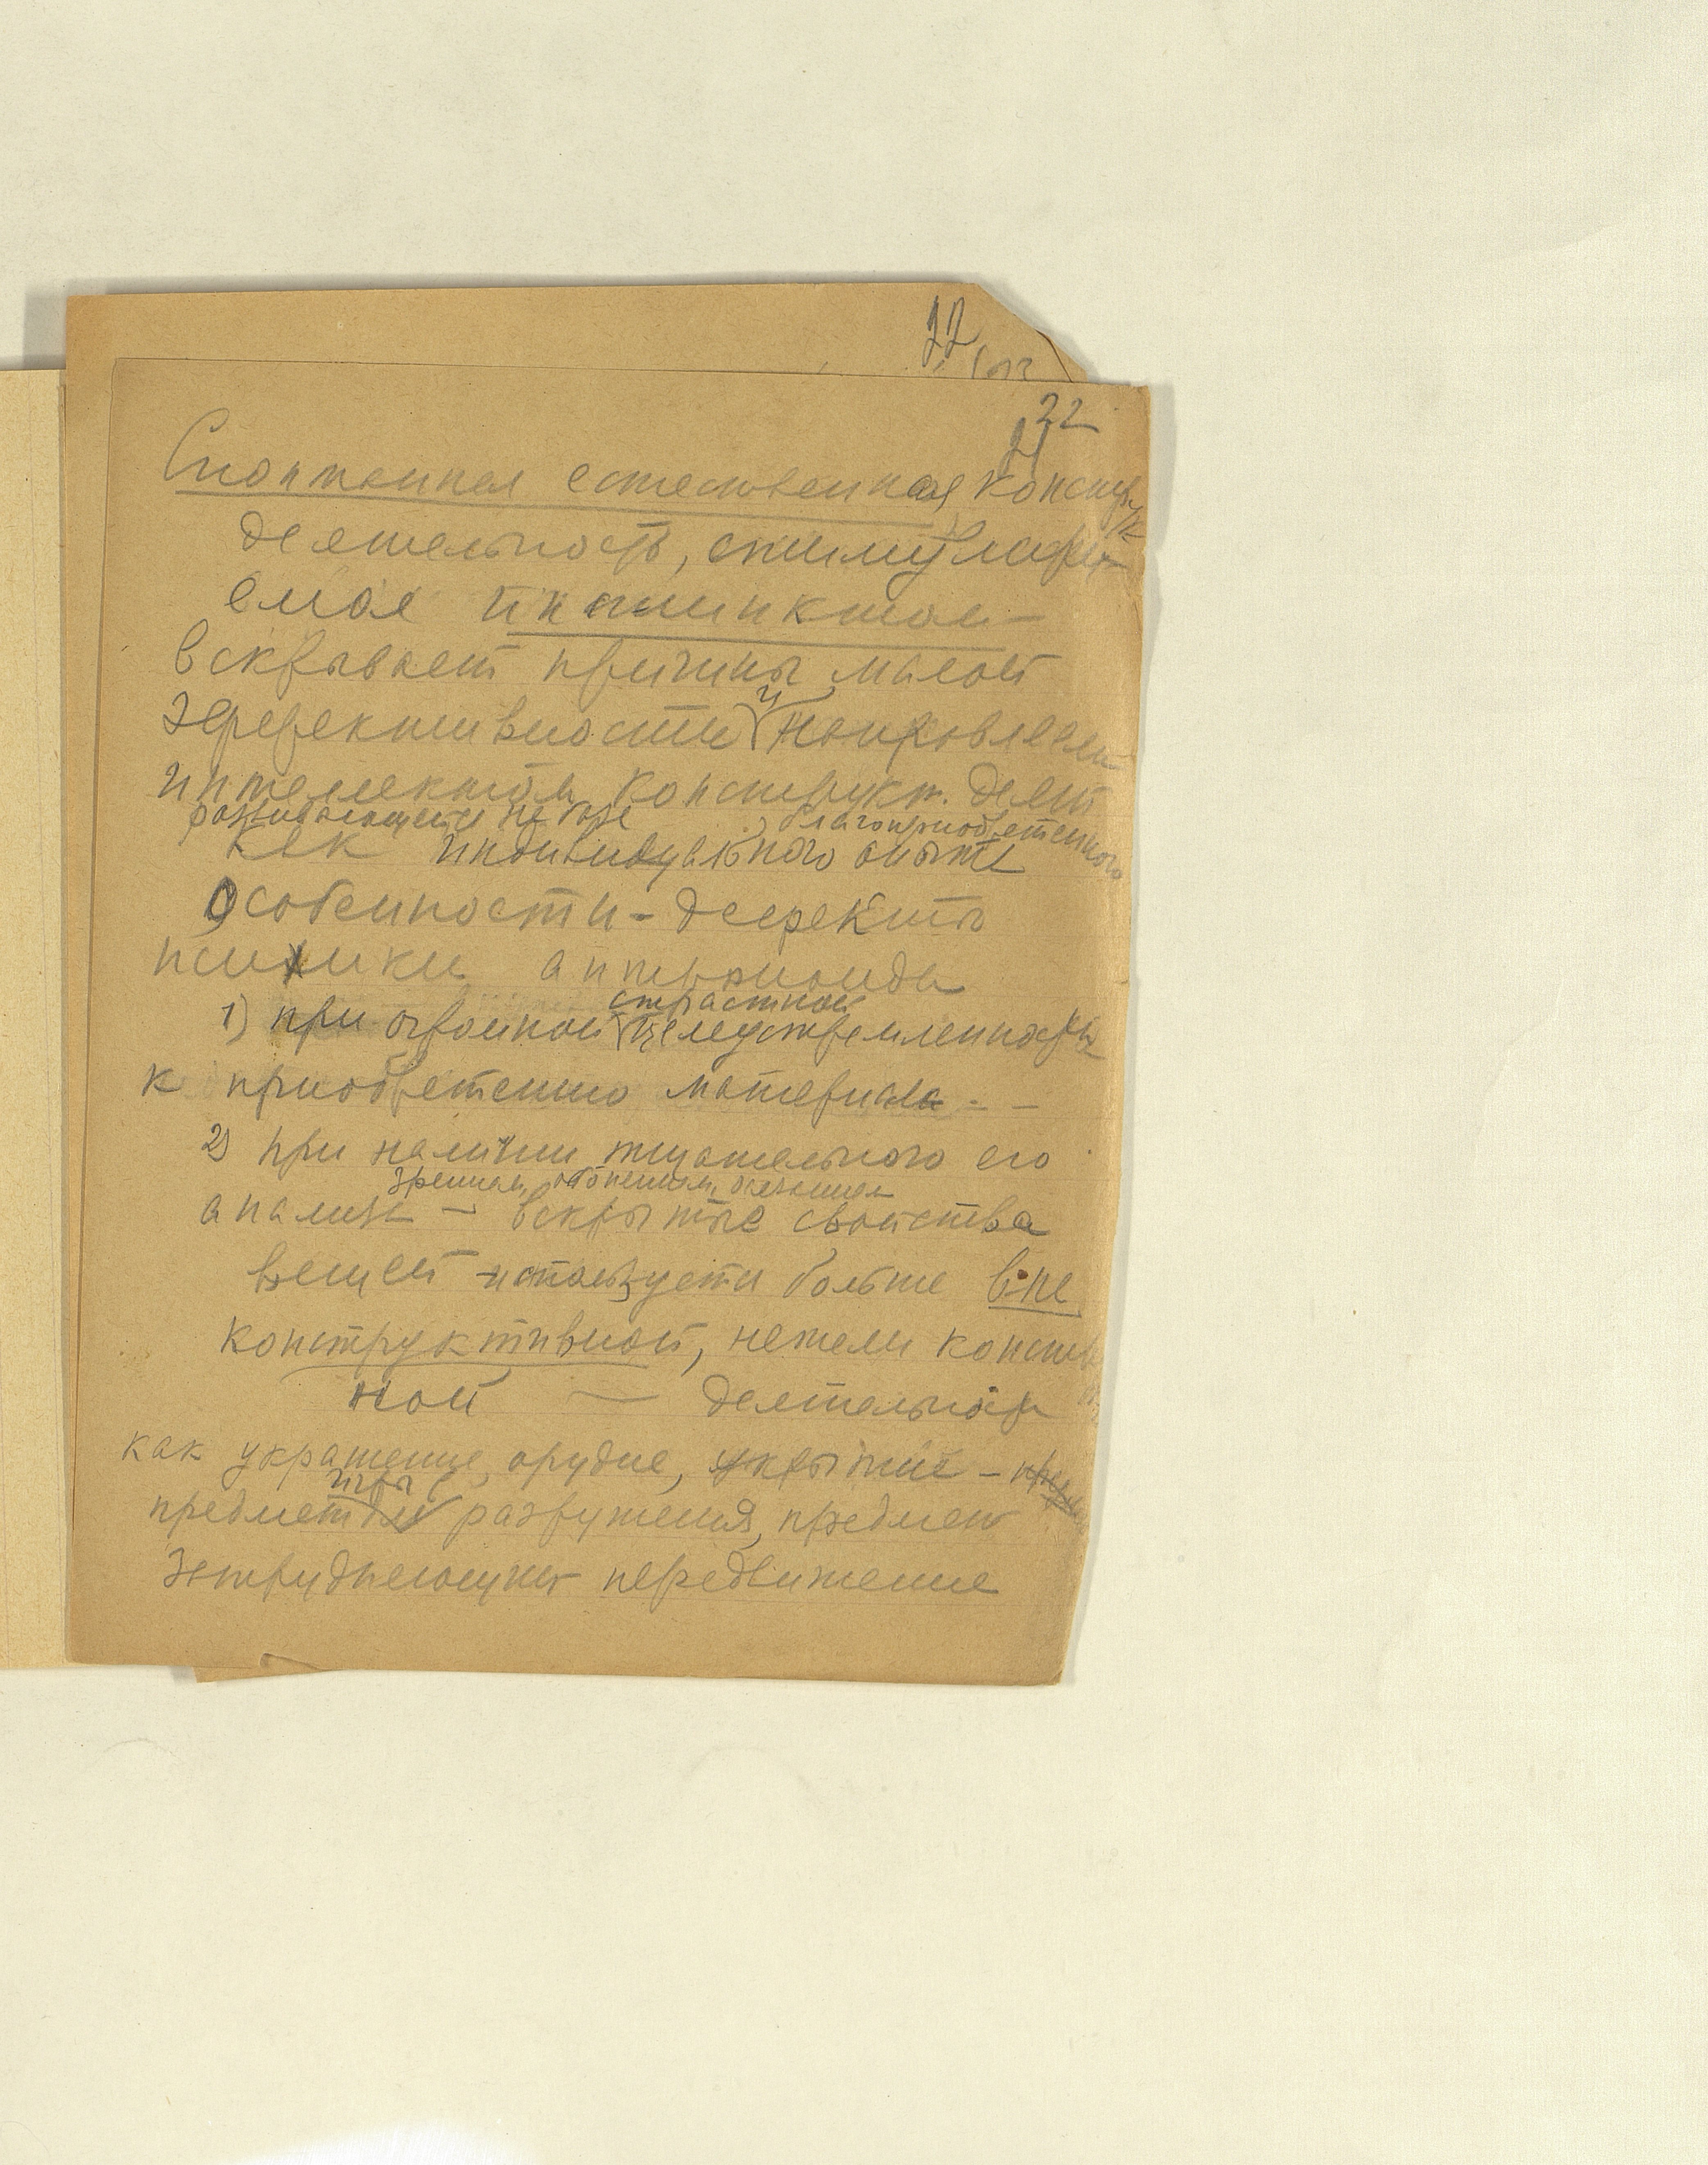 22
22
21
Спонтанная естественная конструк
деятельность, стимулиру-
емая инстинктом –
вскрывает причины малой
и
эффективности направляем
интеллектом конструкт. деят
развивающейся на базе благоприобретенного
как индивидуального опыта
Особенности - дефекты
психики антропоида
страстной
1) при огромной целеустремленности
к приобретению материала - -
2) при наличии тщательного его
зрением, обонянием, осязанием
анализа – вскрытые свойства
вещей использует больше вне
конструктивной, нежели констр
ной — деятельности
как украшение, орудие, укрытие –
игры
предмет для разрушения, предмет
затрудняющий передвижение